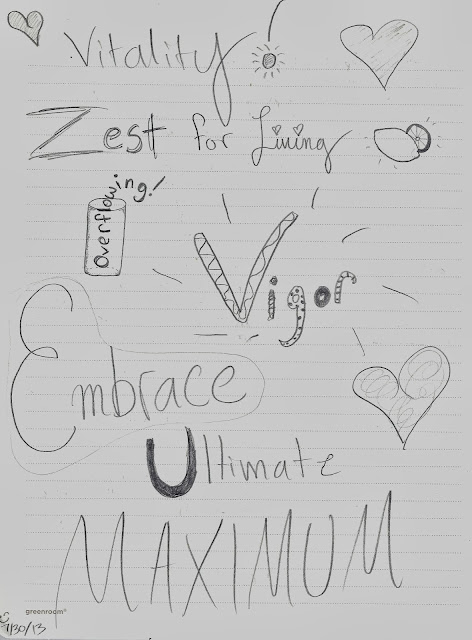 Vitality
Zest for Living
Overflowing!
Vigor
Embrace
Ultimate
MAXIMUM
greenroom®
7/30/13